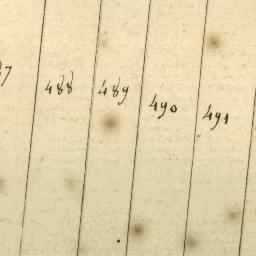 488 489 490 491